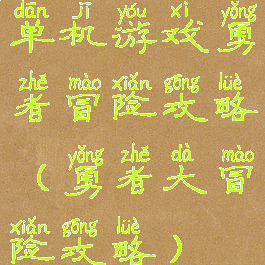 dān jī yóu xì yǒng
单机游戏勇
zhě mào xiǎn gōng lüè
者冒险攻略
yǒng zhě dà mào
（勇者大冒
xiǎn gōng lüè
险攻略）